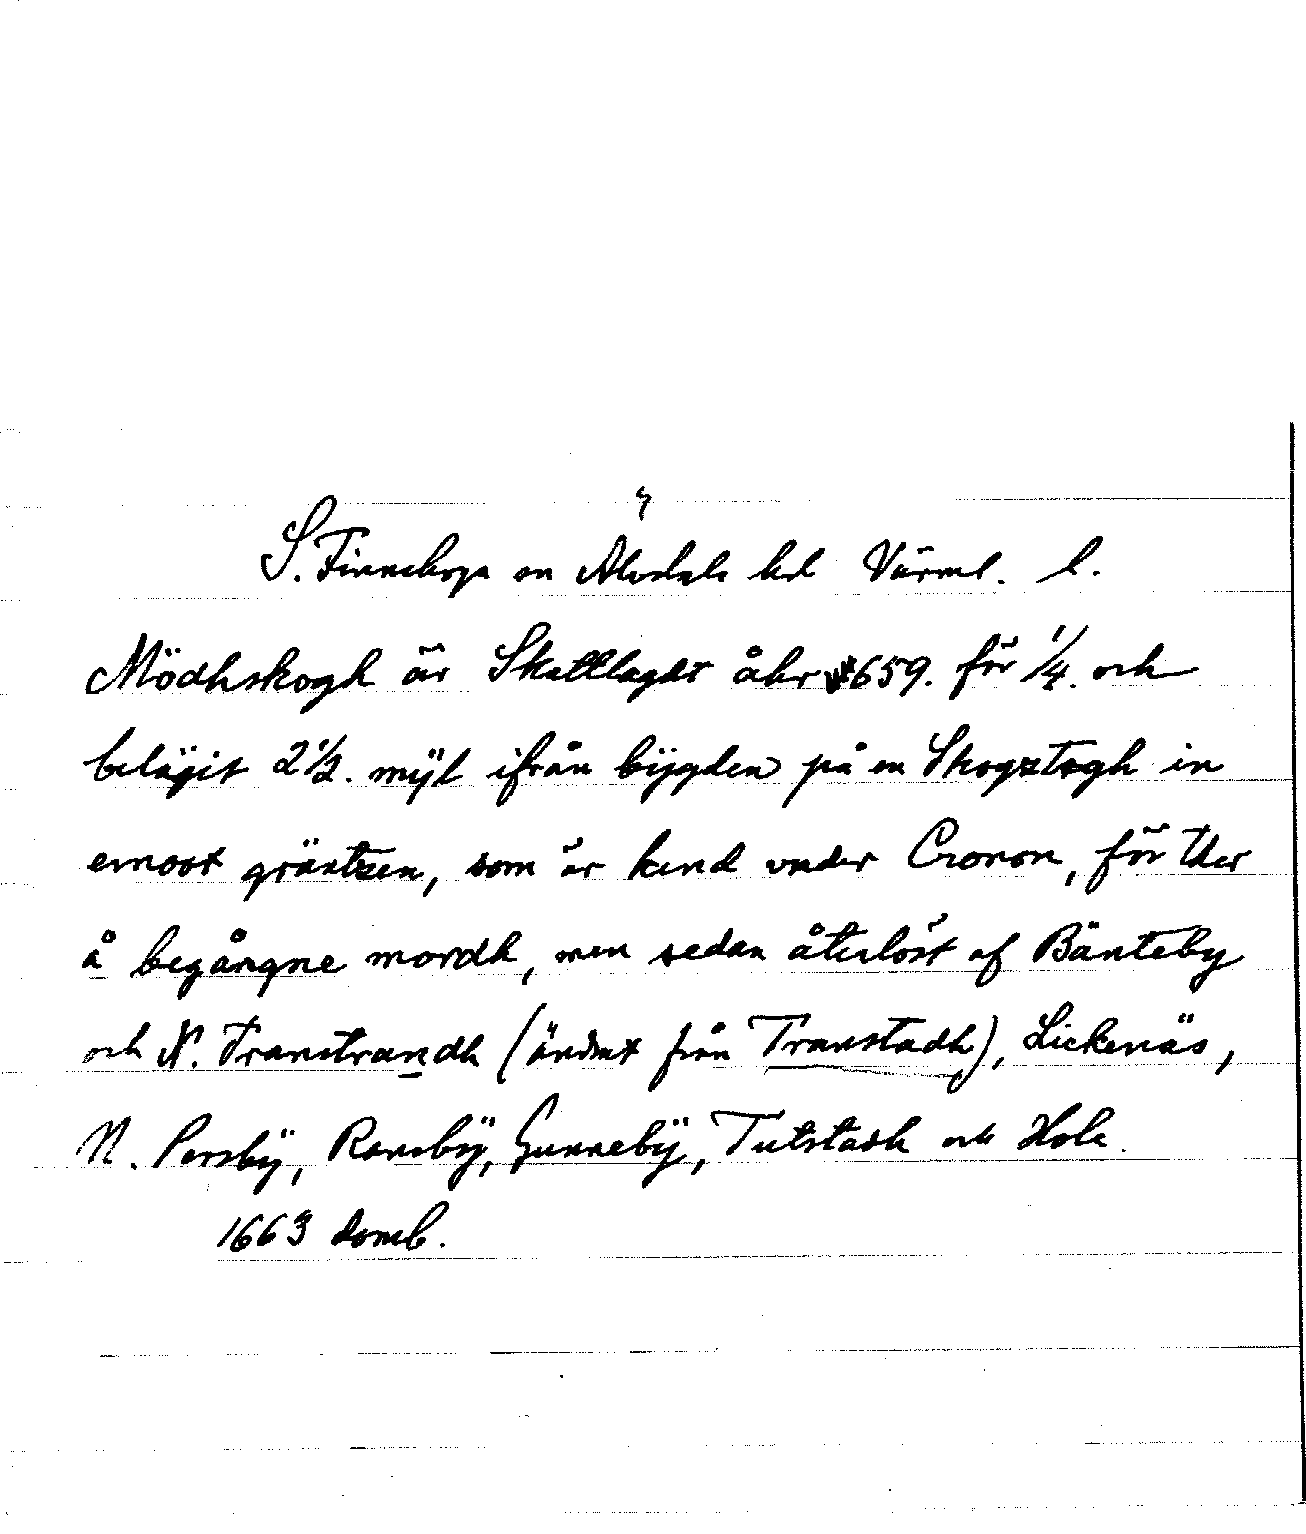 S. Finnskoga sn Älvdals hd Värml. l.
Mödhskogh är Skattlagdt åhr 1659. för 1/4. och
beläyit 2 1/2. mÿl ifrån bÿgden på en Skogztogh in
emoot gräntzen, som är kend under Cronon, för ther
å begångne mordh, men sedan återlöst af Bänteby
och N. Transtrandh (ändrat från Transtadh), Lickenäs,
N. Persbÿ, Ransbÿ, Gunnebÿ, Tutstadh och Hole.
1663 domb.